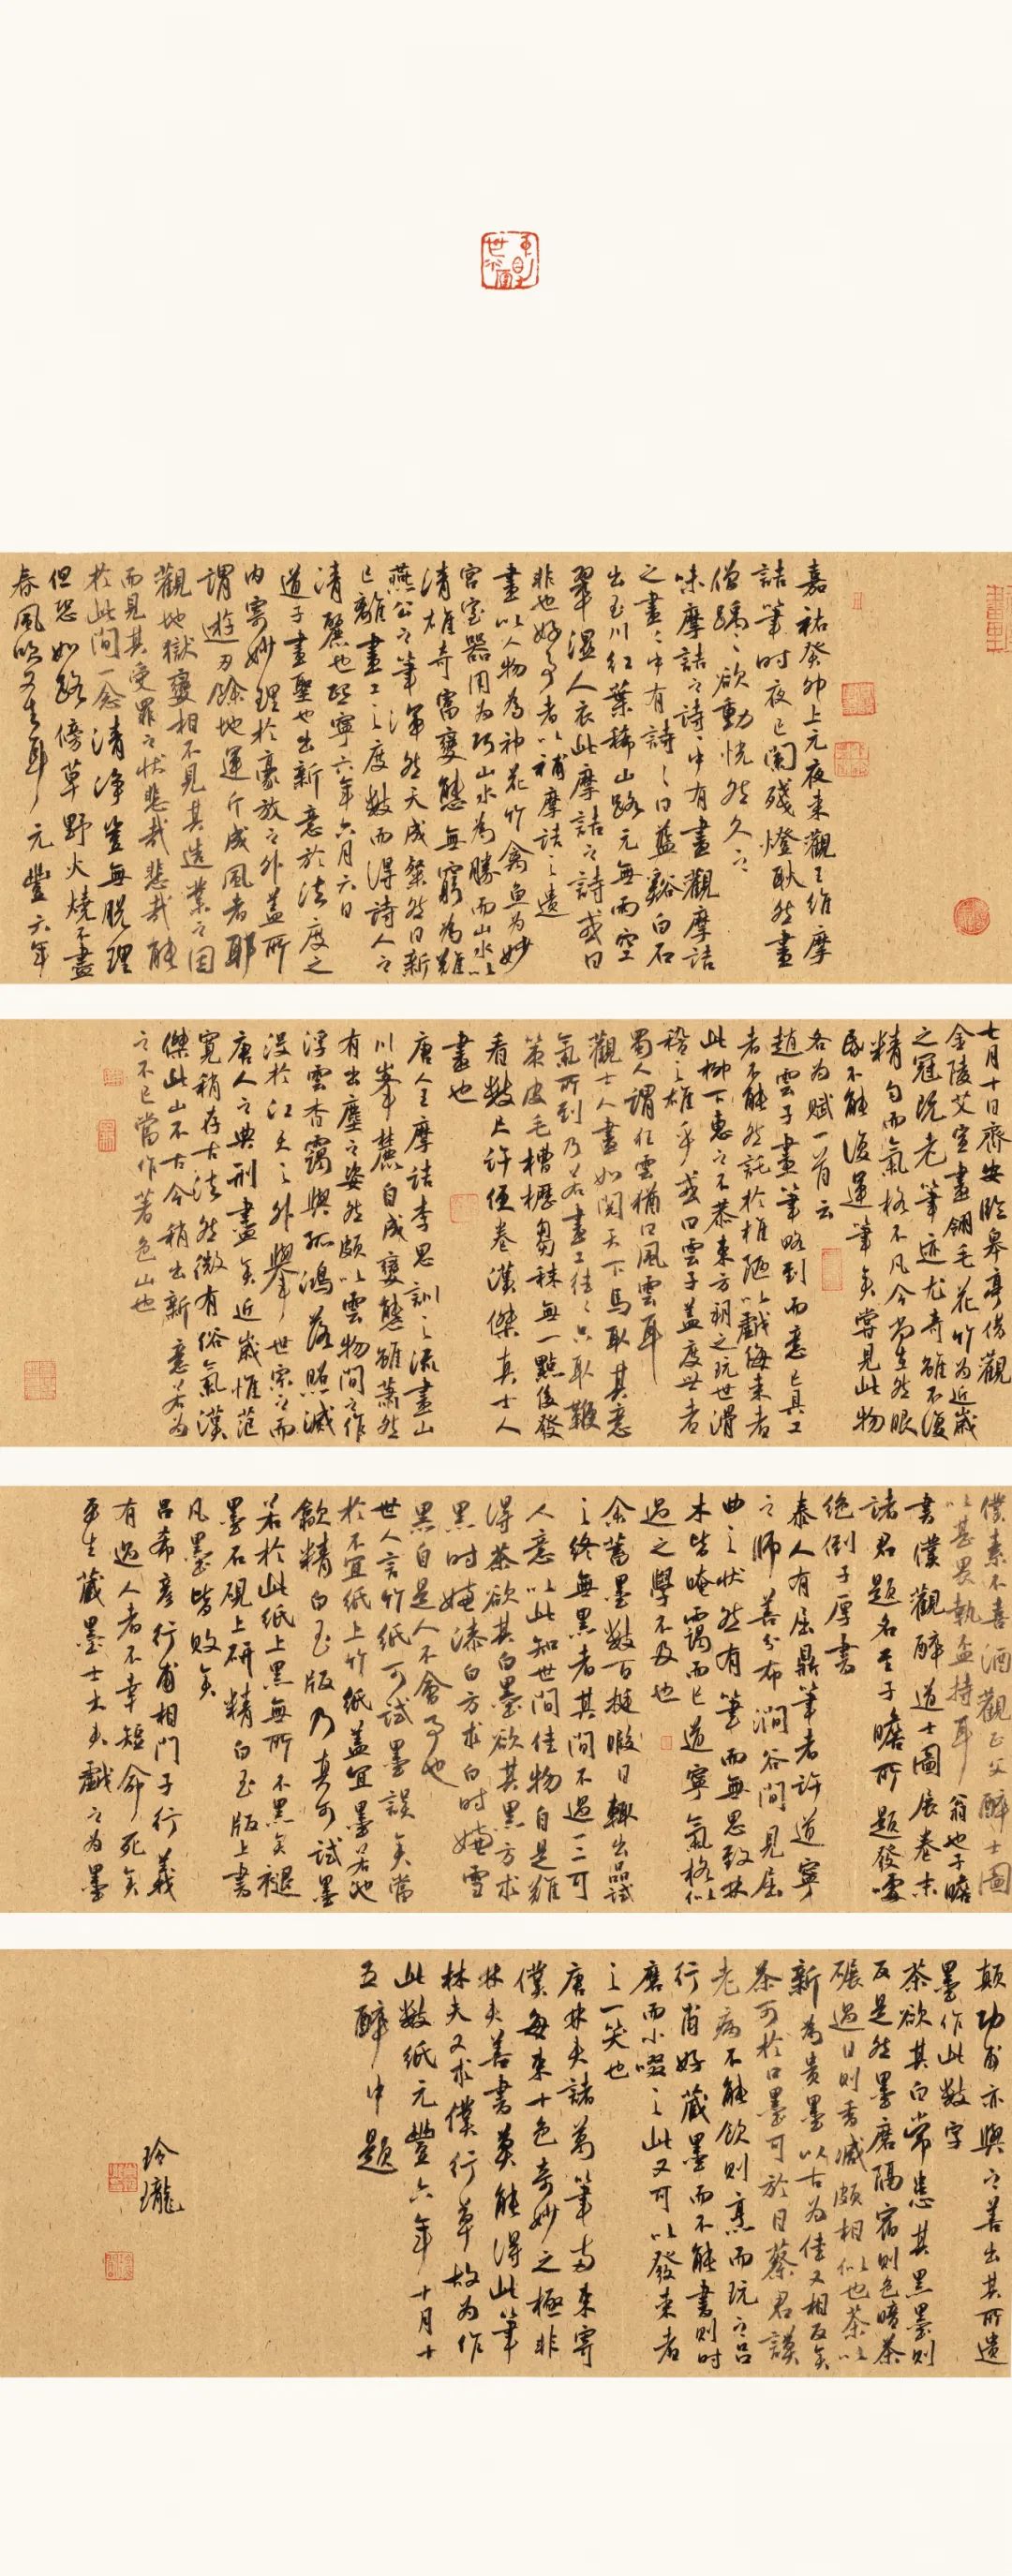 嘉祐癸卯上元夜來觀王維摩
詰筆時夜已闌殘燈耿然畫
僧踽踽欲動恍然久之
味摩詰之詩詩中有畫觀摩詰
之畫畫中有詩詩曰藍谿白石
出玉川紅葉稀山路元無雨空
翠濕人衣此摩詰之詩或曰
非也好事者以補摩詰之遺
畫以人物為神花竹禽魚為妙
宮室器用為巧山水為勝而山水以
清雄奇富變態無窮為難
燕公之筆渾然天成粲然日新
已離畫工之度數而得詩人之
清麗也熙寧六年六月六日
道子畫聖也出新意於法度之
內寄妙理於豪放之外蓋所
謂遊刃餘地運斤成風者耶
觀地獄變相不見其造業之因
而見其受罪之狀悲哉悲哉能
於此間一念清淨豈無脫理
但恐如路傍草野火燒不盡
春風吹又生耳元豐六年
七月十日齊安臨皋亭借觀
金陵艾宣畫翎毛花竹為近歲
之冠既老筆迹尤奇雖不復
精勻而氣格不凡今尚在然眼
昏不能復運筆矣嘗見此物
各為賦一首云
趙雲子畫筆略到而意已具工
者不能然託於椎陋以戲侮來者
此柳下惠之不恭東方朔之玩世滑
稽之雄乎或曰雲子蓋度世者
蜀人謂狂雲猶曰風雲耳
觀士人畫如閱天下馬取其意
氣所到乃若畫工往往只取鞭
策皮毛槽櫪芻秣無一點俊發
看數尺許便卷漢傑真士人
畫也
唐人王摩詰李思訓之流畫山
川峯麓自成變態雖蕭然
有出塵之姿然頗以雲物間之作
浮雲杳靄與孤鴻落照滅
沒於江天之外舉世宗之而
唐人之典刑盡矣近歲惟范
寬稍存古法然微有俗氣漢
傑此山不古今稍出新意若為
之不已當作著色山也
僕素不喜酒觀正父醉士圖
以甚畏執盃持耳翁也子瞻
書僕觀醉道士圖展卷末
諸君題名至子瞻所題發噱
絕倒子厚書
泰人有屈鼎筆者許道寧
之師善分布澗谷間見屈
曲之狀然有筆而無思致林
木皆晻靄而已道寧氣格似
過之學不及也
余蓄墨數百挺暇日輒出品試
之終無黑者其間不過一二可
人意以此知世間佳物自是難
得茶欲其白墨欲其黑方求
黑時嫌漆白方求白時嫌雪
黑自是人不會事也
世人言竹紙可試墨誤矣當
於不宜紙上竹紙蓋宜墨若池
歙精白玉版乃真可試墨
若於此紙上黑無所不黑矣褪
墨石硯上研精白玉版上書
凡墨皆敗矣
呂希彥行甫相門子行義
有過人者不幸短命死矣
平生藏墨士大夫戲之為墨
顛功甫亦與之善出其所遺
墨作此數字
茶欲其白常患其黑墨則
反是然墨磨隔宿則色暗茶
碾過日則香減頗相似也茶以
新為貴墨以古為佳又相反矣
茶可於口墨可於目蔡君謨
老病不能飲則烹而玩之呂
行甫好藏墨而不能書則時
磨而小啜之此又可以發來者
之一笑也
唐林夫諸葛筆兩束寄
僕每束十色奇妙之極非
林夫善書莫能得此筆
林夫又求僕行草故為作
此數紙元豐六年十月十
五醉中題
玲
瓏